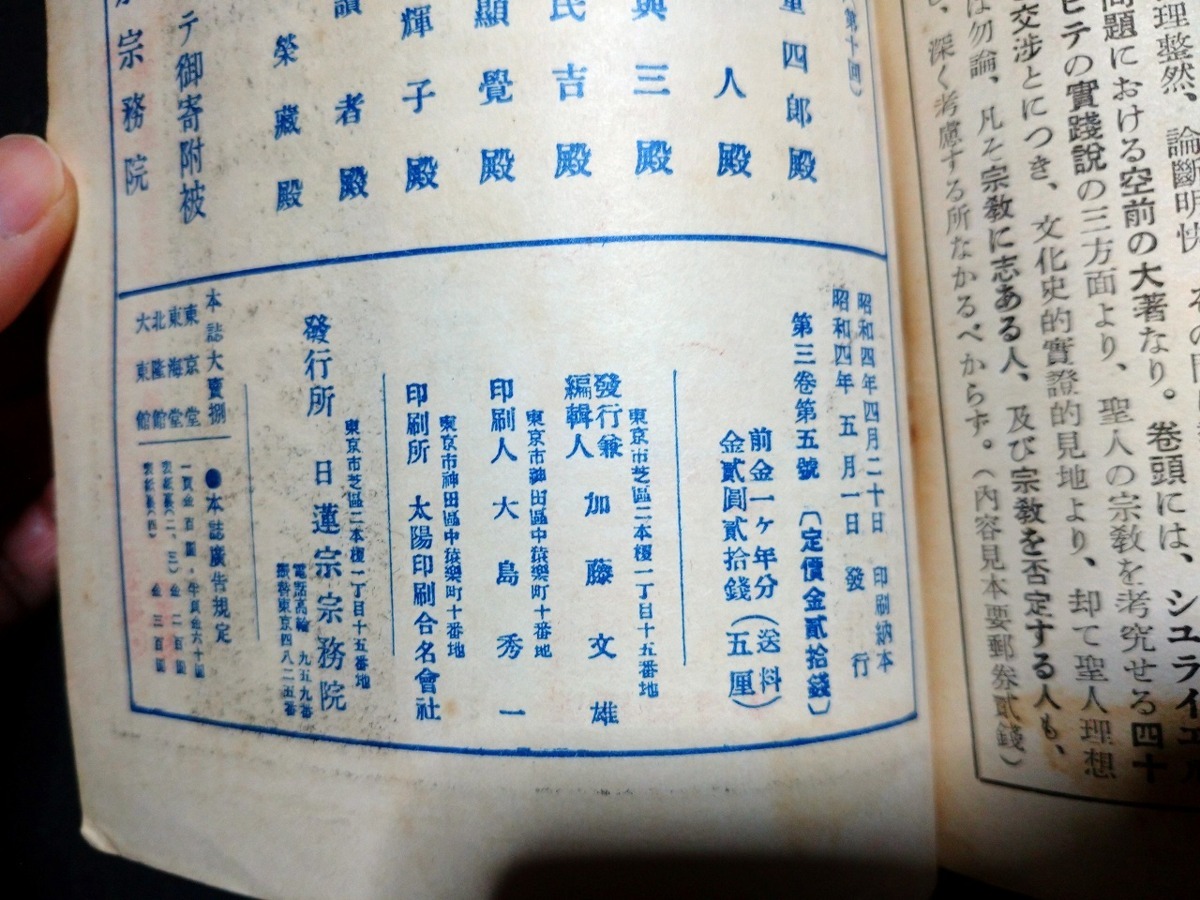 理整然、論斷明快、その
問題における空前の大著なり。卷頭には、シユライエ
ピテの實踐說の三方面より、聖人の宗敎を考究せる四十
交涉とにつき、文化史的實證的見地より、却て聖人理想
は勿論、凡そ宗敎に志ある人、及び宗敎を否定する人も、
深く考慮する所なかるべからず。(內容見本要郵券貳錢)
(第十回)
重四郎殿
人殿
興三殿
民吉殿
顯覺殿
輝子殿
讀者殿
榮藏殿
テ御寄附被
宗務院
昭和四年四月二十日 印刷納本
昭和四年 五月一日 發行
第三卷第五號 〔定價金貳拾錢〕
前金一ケ年分(送料)
金貳圓貳拾錢(五厘)
東京市芝區二本榎一丁目十五番地
發行兼
編輯人 加藤文雄
東京市神田區中猿樂町十番地
印刷人 大島秀一
東京市神田區中猿樂町十番地
印刷所 太陽印刷合名會社
東京市芝區二本榎一丁目十五番地
發行所 日蓮宗宗務院
電話高輪 九五九番
振替東京四八二五番
本誌大賣捌
東京堂
東海堂
北隆館
大東館
●本誌廣告規定
一頁金百圓・半頁金六十圓
表紙裏(二、三) 金二百圓
金三百圓